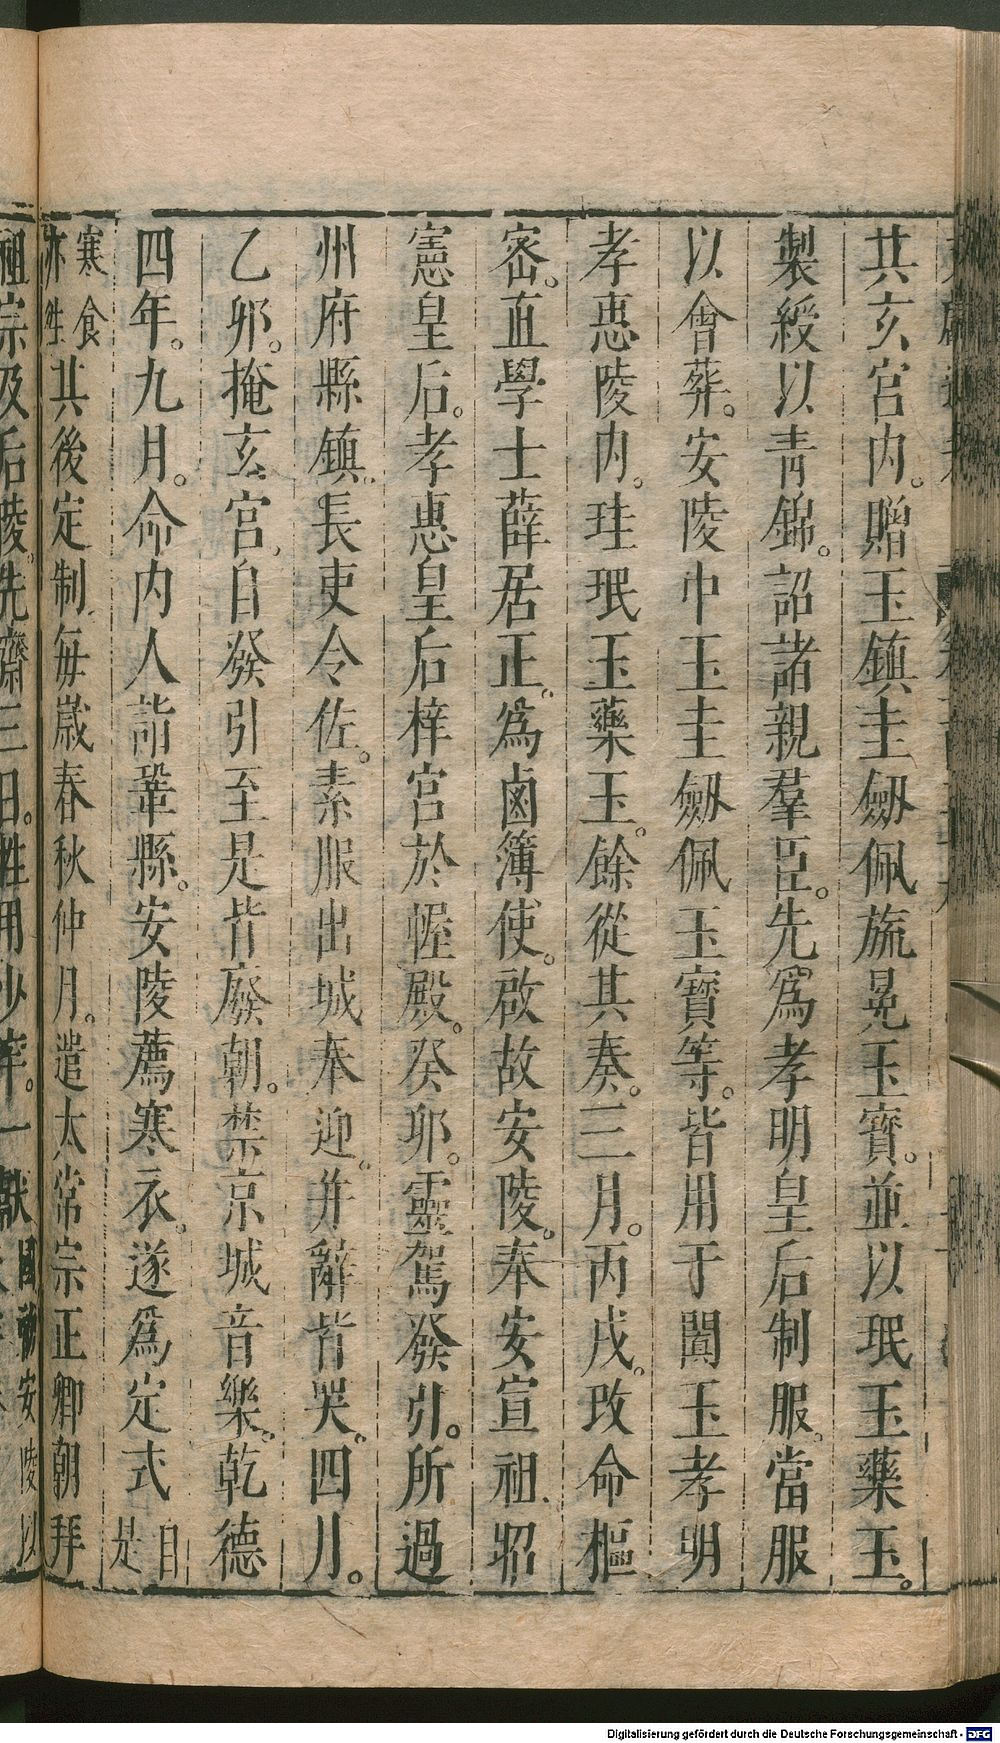 共玄宮内。贈玉鎮圭劒佩旒冕玉寶。並以珉玉藥玉。
製綬以青錦。詔諸親羣臣。先爲孝明皇后制服。當服
以會葬。安陵中玉圭劒佩玉寶等。皆用于闐玉孝明
孝惠陵内。珪珉玉藥玉。餘從其奏。三月。丙戌。攺命樞
宻。直學士薛居正。爲鹵簿使。啟故安陵。奉安宣祖昭
憲皇后。孝惠皇后梓宮於幄殿。癸卯。靈駕發引。所過
州府縣鎮。長吏令佐。素服出城奉迎。并辭皆哭。四月。
乙卯。掩玄宮。自發引至是皆廢朝。禁京城音樂。乾德
四年。九月。命内人詣鞏縣。安陵薦寒衣。遂爲定式自是
寒食亦然其後定制。毎歳春秋仲月。遣太常宗正卿朝拜
祖宗及后陵。先齋三日。牲用少牢。一獻
Digitalisierung gefördert durch die Deutsche Forschungsgemeinschaft - DFG